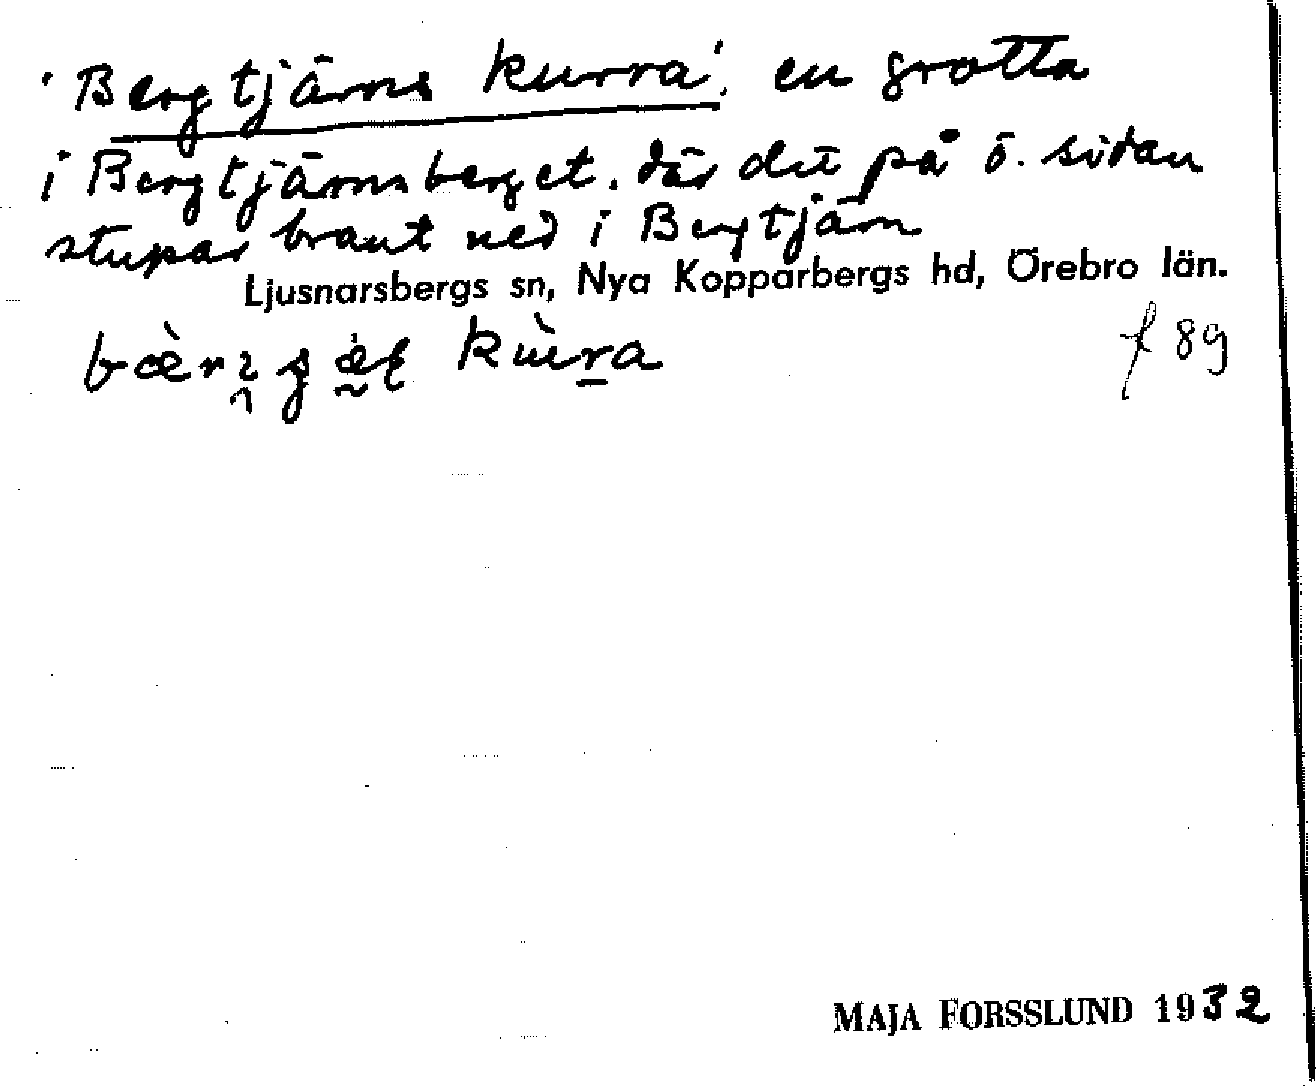 'Bergtjärns kurra', en grotta
i Bergtjärnsberget, där det på ö. sidan
stupar brant ned i Bergtjärn
Ljusnarsbergs sn, Nya Kopparbergs hd, Örebro län.
kùra
f 89
MAJA FORSSLUND 1932